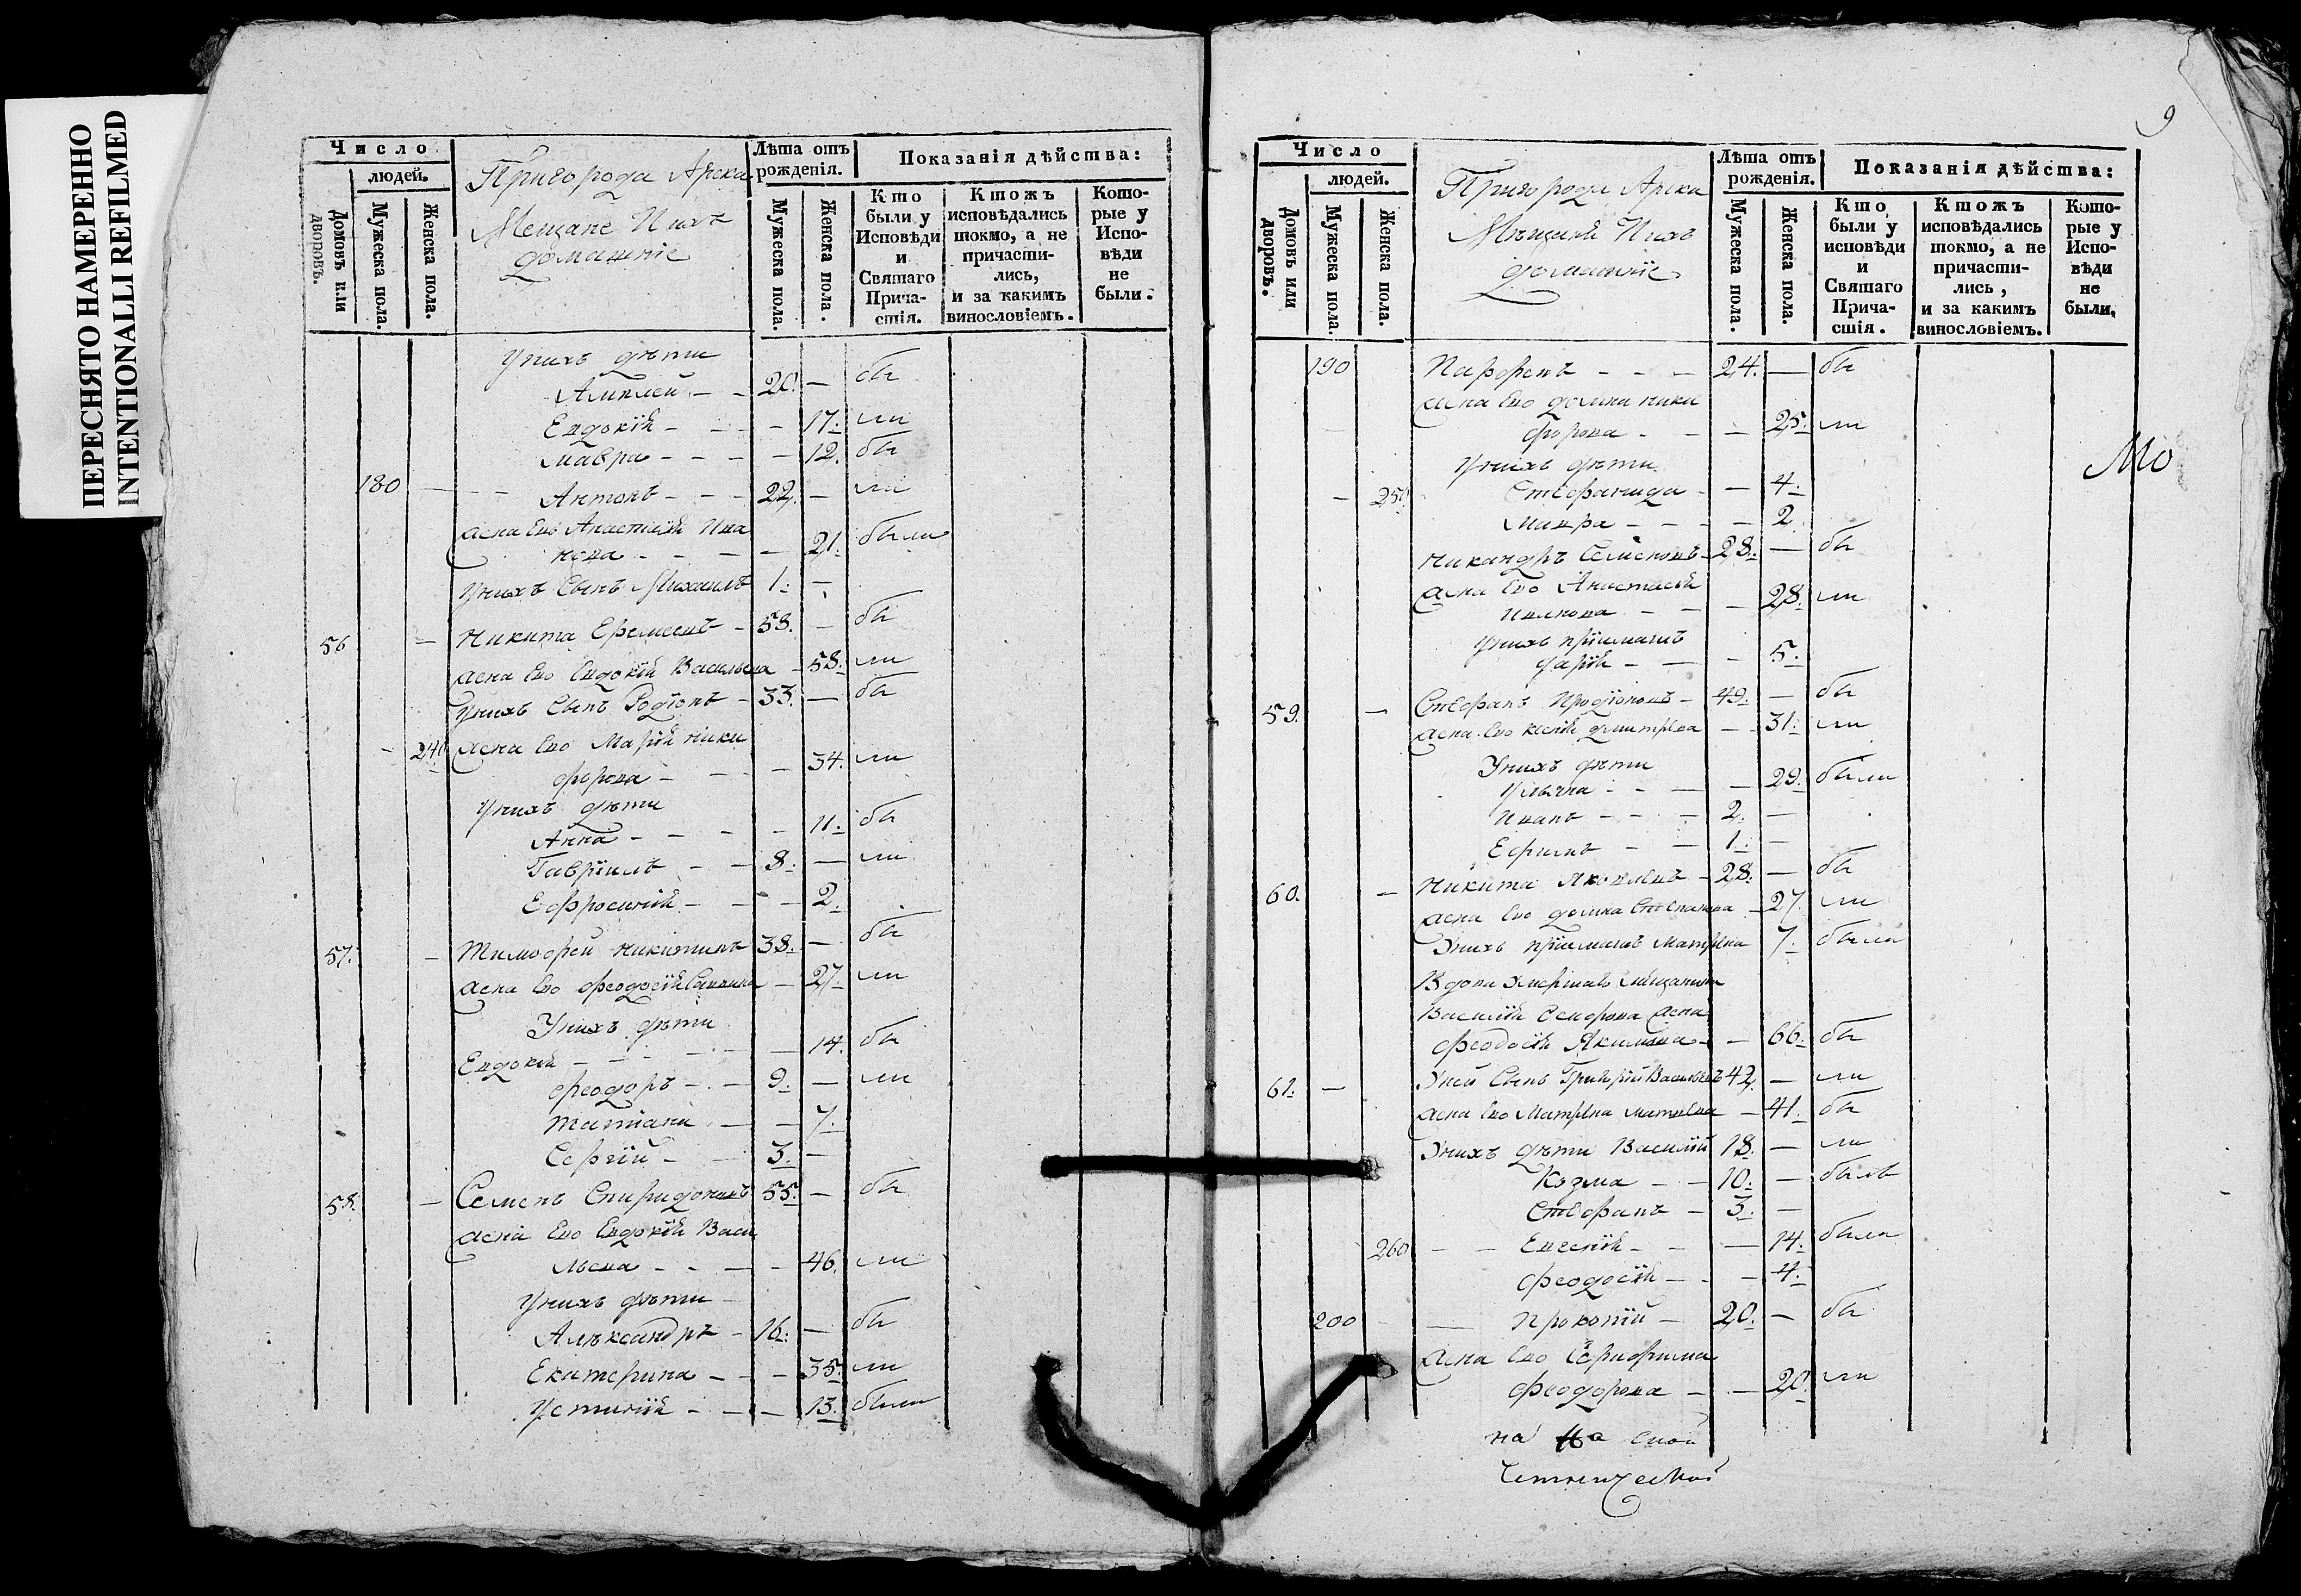 ПЕРЕСНЯТО НАМЕРЕННО
INTENTIONALLI REFILMED
Число
людей.
Домовъ или дворовъ.
Мужеска пола.
Женска пола.
Пригорода Арска
Мещане Ихъ
домашніе
Лѣта отъ рожденія.
Мужеска пола.
Женска пола.
Показанія дѣйства:
Кто были у Исповѣди и Святаго Причастія.
Ктожъ исповѣдались токмо, а не причастились, и за какимъ винословіемъ.
Которые у Исповѣди не были.
Унихъ дѣти
20. — бы
Евдокія - - - 17. ли
Мавра - - - 12. бы
180 — Антонъ - - 22. — ли
жена Ево Анастасія Ива
нова - - - 21. были
Унихъ Сынъ Михаилъ 1. —
56 — Никита Еремеевъ - 58. — бы
жена Ево Евдокія Васильева - 58. ли
Унихъ Сынъ Родіонъ - 33. — бы
- 240 жена Ево Марія Ники
форова - - - 34. ли
Унихъ дѣти
Анна - - - 11. бы
Гавріилъ - - 8. — ли
Ефросинія - - - 2.
57. — Тимофей Никитинъ 38. — бы
жена Ево Феодосія - 27. ли
Унихъ дѣти
Евдокія - - - 14. бы
Феодоръ - - 9. — ли
Татіана - - 7.
Сергій - - 3. —
58. — Семенъ Спиридоновъ 55. — бы
жена Ево Евдокія Васи
льева - - - 46. ли
Унихъ дѣти
Александръ - 16. — бы
Екатерина - - - 35. ли
Устинія - - - 13. были
9
Число
людей.
Домовъ или дворовъ.
Мужеска пола.
Женска пола.
Пригорода Арска
Мѣщане Ихъ
домашніе
Лѣта отъ рожденія.
Мужеска пола.
Женска пола.
Показанія дѣйства:
Кто были у исповѣди и Святаго Причастія.
Ктожъ исповѣдались токмо, а не причастились, и за какимъ винословіемъ.
Которые у Исповѣди не были.
190 Парфенъ - - - 24. — бы
жена Ево Домна Ники
форова - - - 25. ли
Унихъ дѣти
- 250 Стефанида - - 4.
Мавра - - - 2
Никандръ Семеновъ - 28. — бы
жена Ево Анастасія
Иванова - - - 28. ли
Унихъ пріимышъ
Дарія - - - 5.
59. — Стефанъ Иродіоновъ - 49. — бы
жена Ево Ксенія Дмитріева - - 31. ли
Унихъ дѣти
Ульяна - - - 29. были
Иванъ - - - 2. —
Ефимъ - - 1. —
60. — Никита Яковлевъ - 28. — бы
жена Ево Домна Степанова - 27. ли
Унихъ пріимышъ Матрена 7. была
Вдова Умершаго мѣщанина
Василія жена
Феодосія Якимова - - 66. бы
61. — Уней Сынъ Григорій Васильевъ 42. — ли
жена Ево Матрена Матвеева - 41. бы
Унихъ дѣти Василій 18. — ли
Козма - - 10. — былъ
Стефанъ - 3. —
260 - - Евгенія - - - 14. была
Феодосія - - - 4.
200 — Прокопій - 20. — бы
жена Ево
Феодорова - - - 20. ли